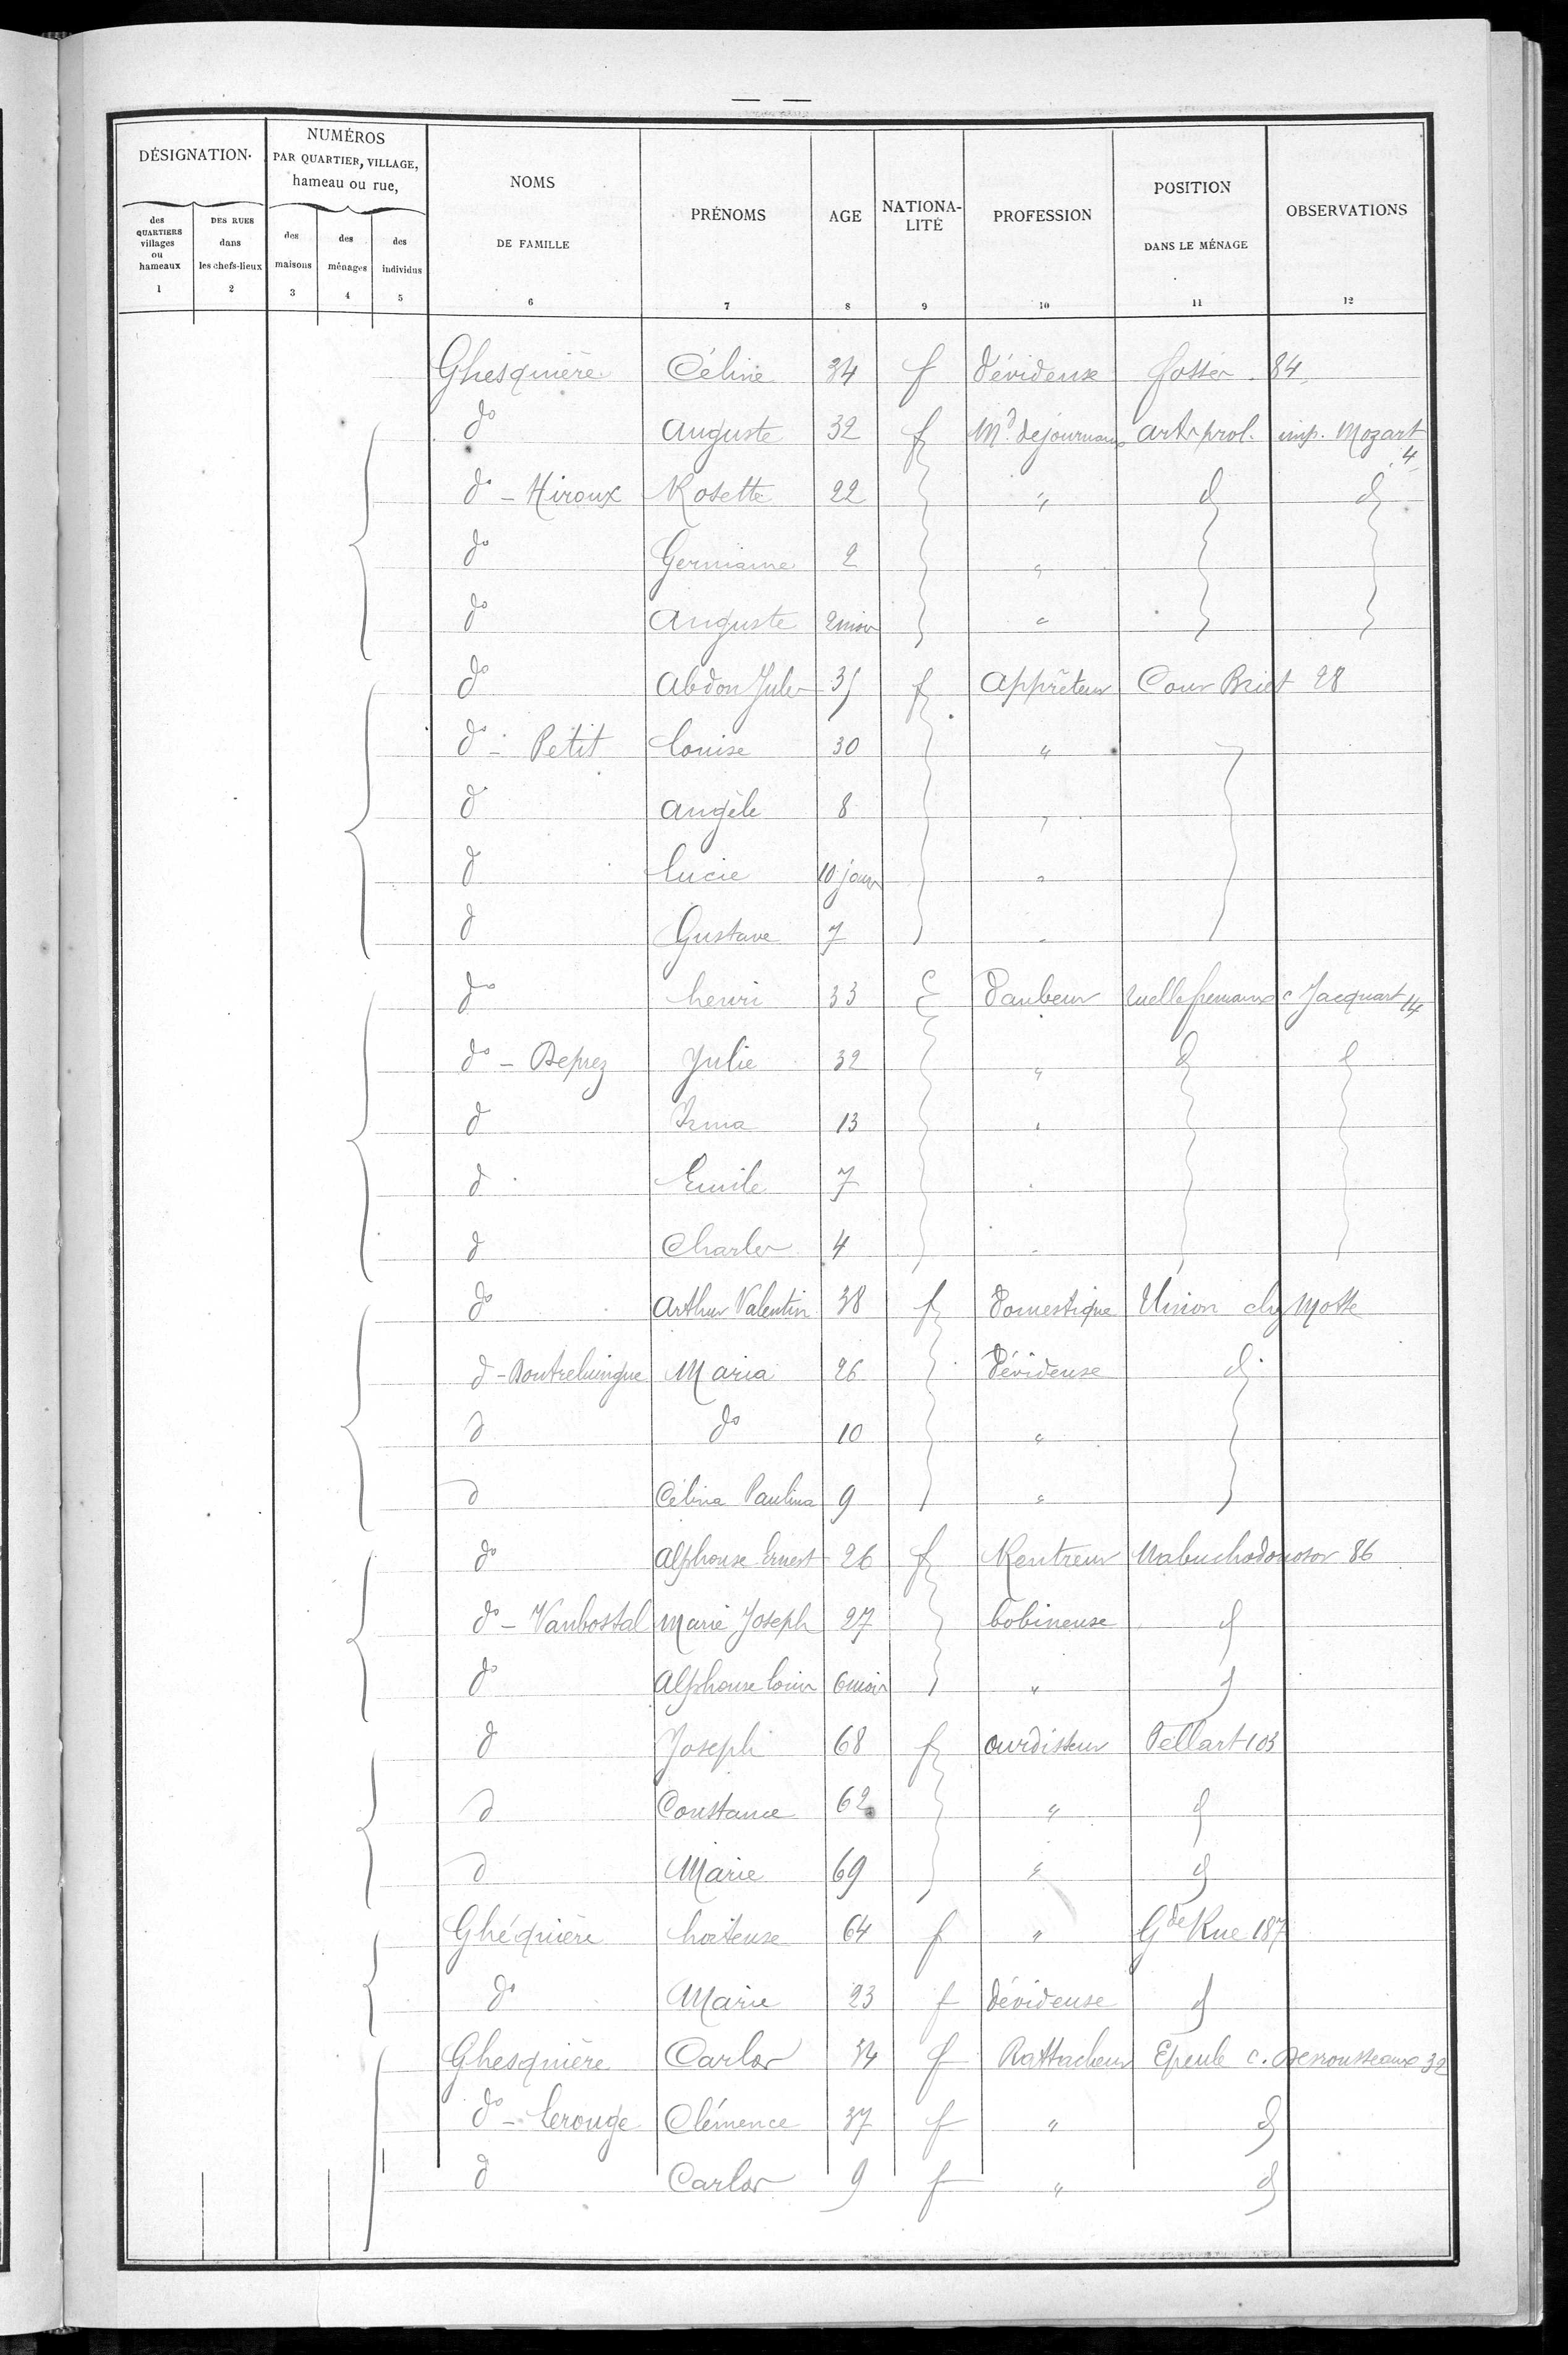 — —
DÉSIGNATION.
NUMÉROS
PAR QUARTIER, VILLAGE,
hameau ou rue,
NOMS
DE FAMILLE
PRÉNOMS
AGE
NATIONA-
LITÉ
PROFESSION
POSITION
DANS LE MÉNAGE
OBSERVATIONS
des
QUARTIERS
villages
ou
hameaux
DES RUES
dans
les chefs-lieux
des
maisons
des
ménages
des
individus
1 2 3 4 5 6 7 8 9 10 11 12
Ghesquière Céline 34 f Dévideuse fossés 84
do Auguste 32 f Md de journaux arts prol. imp. Mozart 4
do - Hiroux Rosette 22 " d d
do Germaine 2 "
do Auguste 2 mois "
do Abdon Jules 35 f Apprêteur Cour Briet 28
do - Petit Louise 30 "
d Angèle 8 "
d Lucie 10 jours "
d Gustave 7 "
do henri 33 E Daubeur ruelle fremaux c Jacquart 14
do - Deprez Julie 32 " d d
d Irma 13 "
d Emile 7 "
d Charles 4 "
do Arthur Valentin 38 f Domestique Union chez Motte
d - Bontreluingue Maria 26 Dévideuse d
d do 10 "
d Célina Paulina 9 "
do Alphonse Ernest 26 f Rentreur Nabuchodonosor 86
do - Vanbostal Marie Joseph 27 bobineuse d
do Alphonse Louis 6 mois " d
d Joseph 68 f ourdisseur Pellart 103
d Constance 62 " d
d Marie 69 " d
Ghéquière hortense 64 f " Gde Rue 187
do Marie 23 f dévideuse d
Ghesquière Carlos 34 f Rattacheur Epeule c. Desrousseaux 32
do - Lerouge Clémence 37 f " d
d Carlos 9 f " d